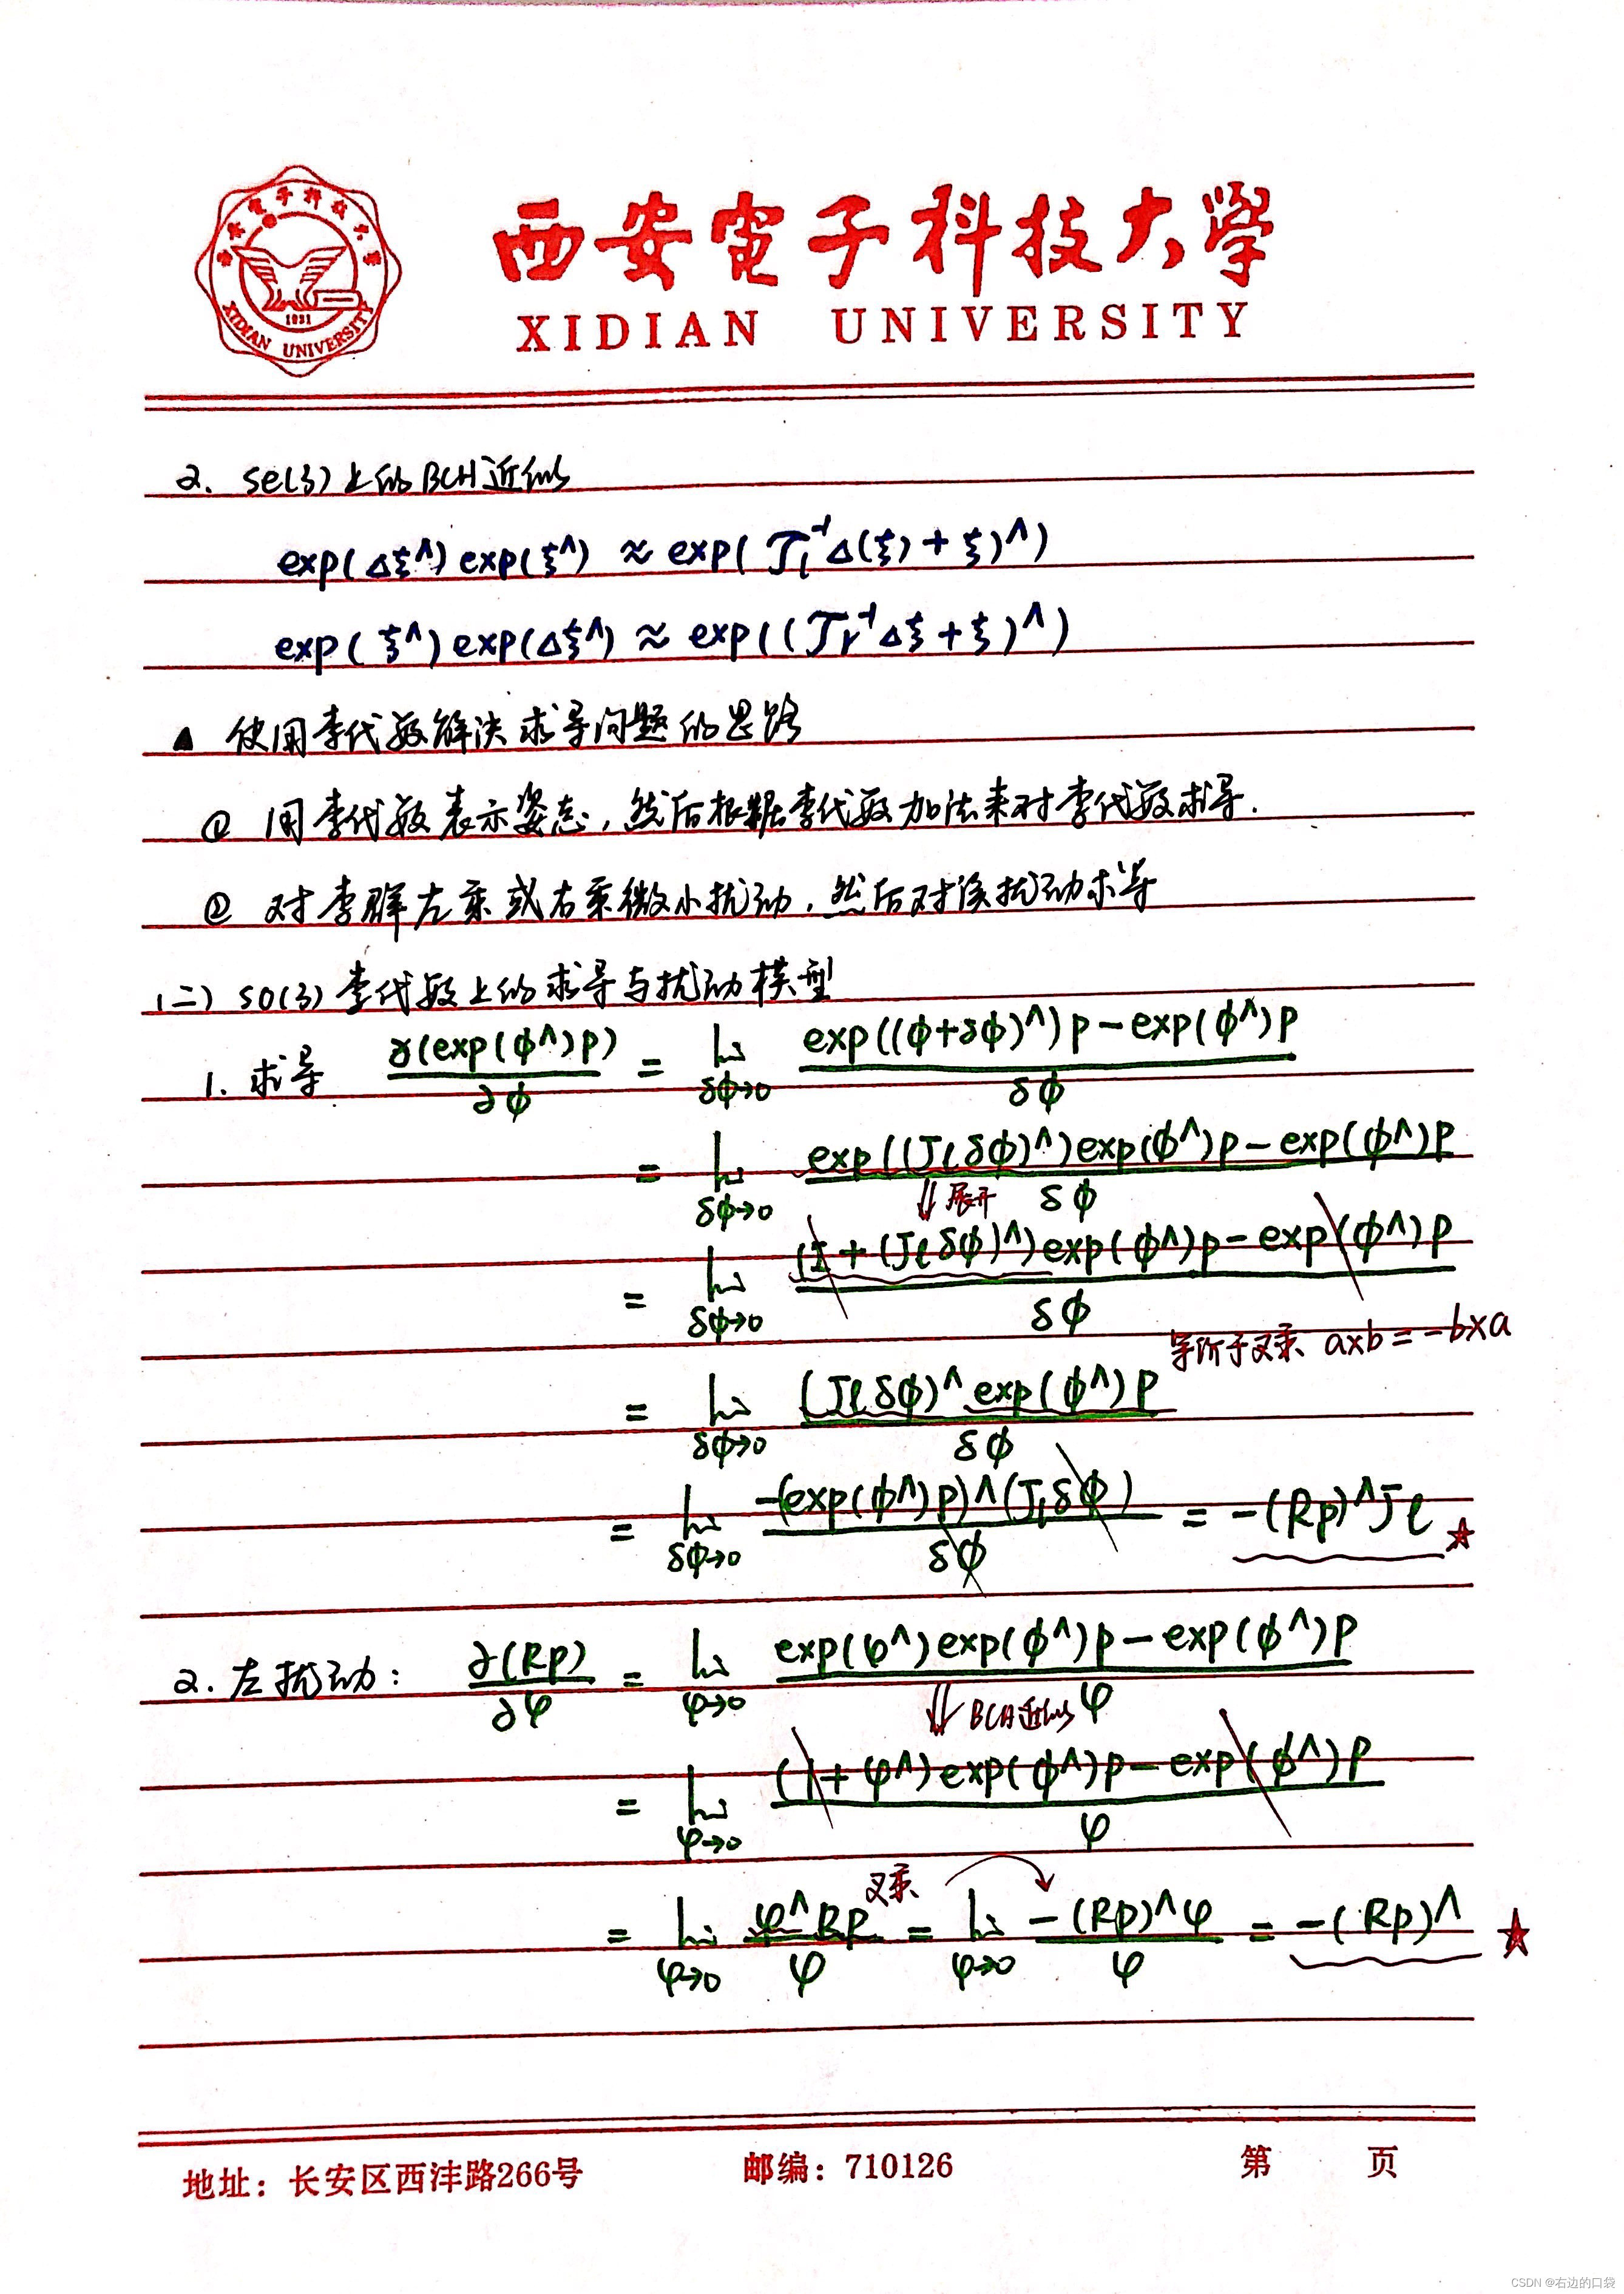 西安電子科技大學
XIDIAN UNIVERSITY
西安電子科技大學
1931
XIDIAN UNIVERSITY
2. se(3)上的BCH近似
exp(Δξ^)exp(ξ^) ≈ exp(𝒥l⁻¹Δ(ξ)+ξ)^)
exp(ξ^)exp(Δξ^) ≈ exp((𝒥r⁻¹Δξ+ξ)^)
▲ 使用李代数解决求导问题的思路
① 用李代数表示姿态,然后根据李代数加法来对李代数求导.
② 对李群左乘或右乘微小扰动,然后对该扰动求导
(二) so(3)李代数上的求导与扰动模型
1. 求导 ∂(exp(ϕ^)p)/∂ϕ = lim δϕ→0 exp((ϕ+δϕ)^)p−exp(ϕ^)p / δϕ
= lim δϕ→0 exp((Jlδϕ)^)exp(ϕ^)p−exp(ϕ^)p / δϕ
⇓展开
= lim δϕ→0 (I+(Jlδϕ)^)exp(ϕ^)p−exp(ϕ^)p / δϕ
等价于叉乘 a×b=−b×a
= lim δϕ→0 (Jlδϕ)^exp(ϕ^)p / δϕ
= lim δϕ→0 −(exp(ϕ^)p)^(Jlδϕ) / δϕ = −(Rp)^Jl ☆
2. 左扰动: ∂(Rp)/∂φ = lim φ→0 exp(φ^)exp(ϕ^)p−exp(ϕ^)p / φ
⇓BCH近似
= lim φ→0 (1+φ^)exp(ϕ^)p−exp(ϕ^)p / φ
叉乘
= lim φ→0 φ^Rp / φ = lim φ→0 −(Rp)^φ / φ = −(Rp)^ ★
地址：长安区西沣路266号 邮编：710126 第 页
CSDN @右边的口袋